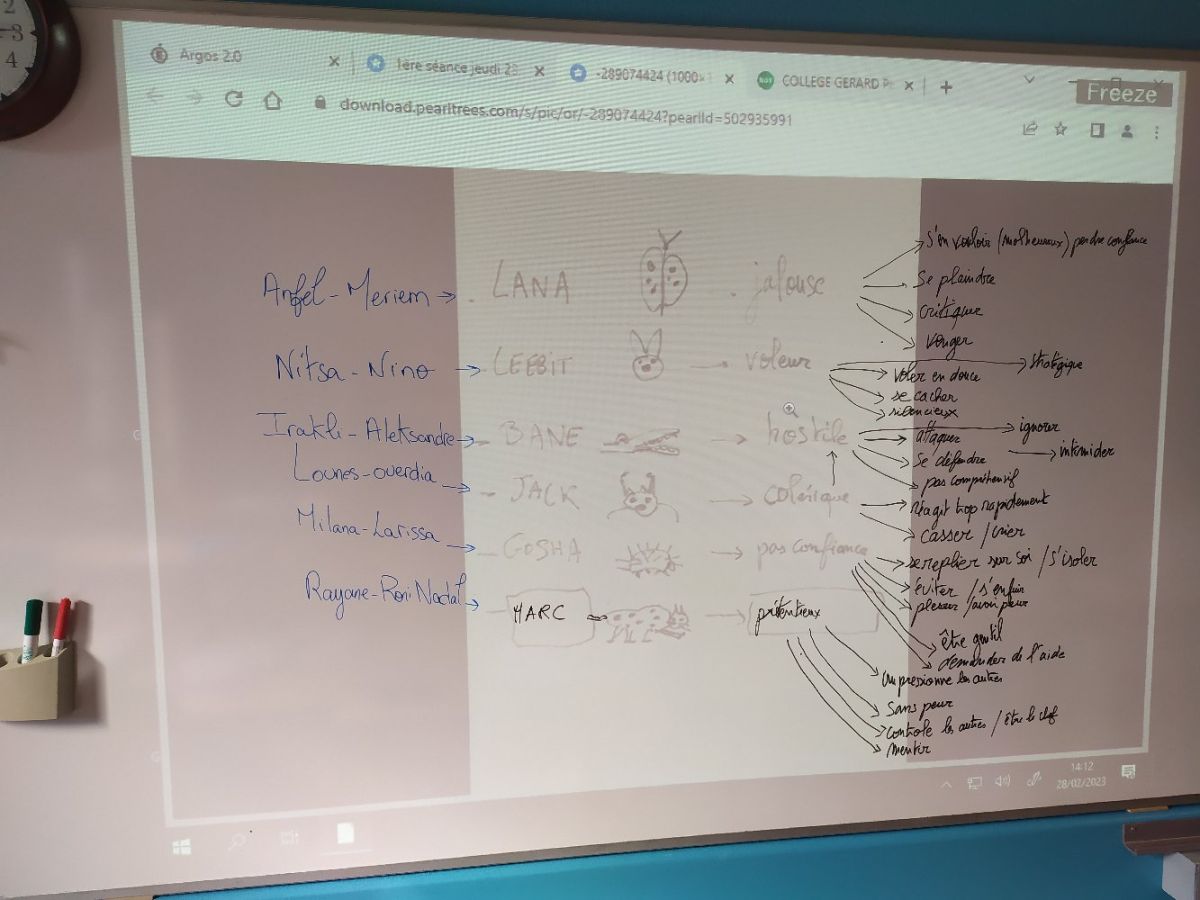 2
3
4
Argos 2.0
1ère séance jeudi 23
-289074424 (1000×1
COLLEGE GERARD P
Freeze
download.pearltrees.com/s/pic/or/-289074424?pearlId=502935991
Anfel-Meriem → . LANA . jalouse
s'en vouloir (malheureux) perdre confiance
Se plaindre
critiquer
venger
Nitsa-Nino → LEEBIT → voleur
stratégique
voler en douce
se cacher
silencieux
Irakli-Aleksandre → - BANE → hostile
ignorer
attaquer
se défendre → intimider
pas compréhensif
Lounes-ouerdia → - JACK → colérique
réagit trop rapidement
casser / crier
Milana-Larissa → - GOSHA → pas confiance
se replier sur soi / s'isoler
éviter / s'enfuir
pleurer / avoir peur
être gentil
demander de l'aide
Rayane-Roni Nadal → - MARC → prétentieux
impressionne les autres
Sans peur
contrôle les autres / être le chef
mentir
14:12
28/02/2023